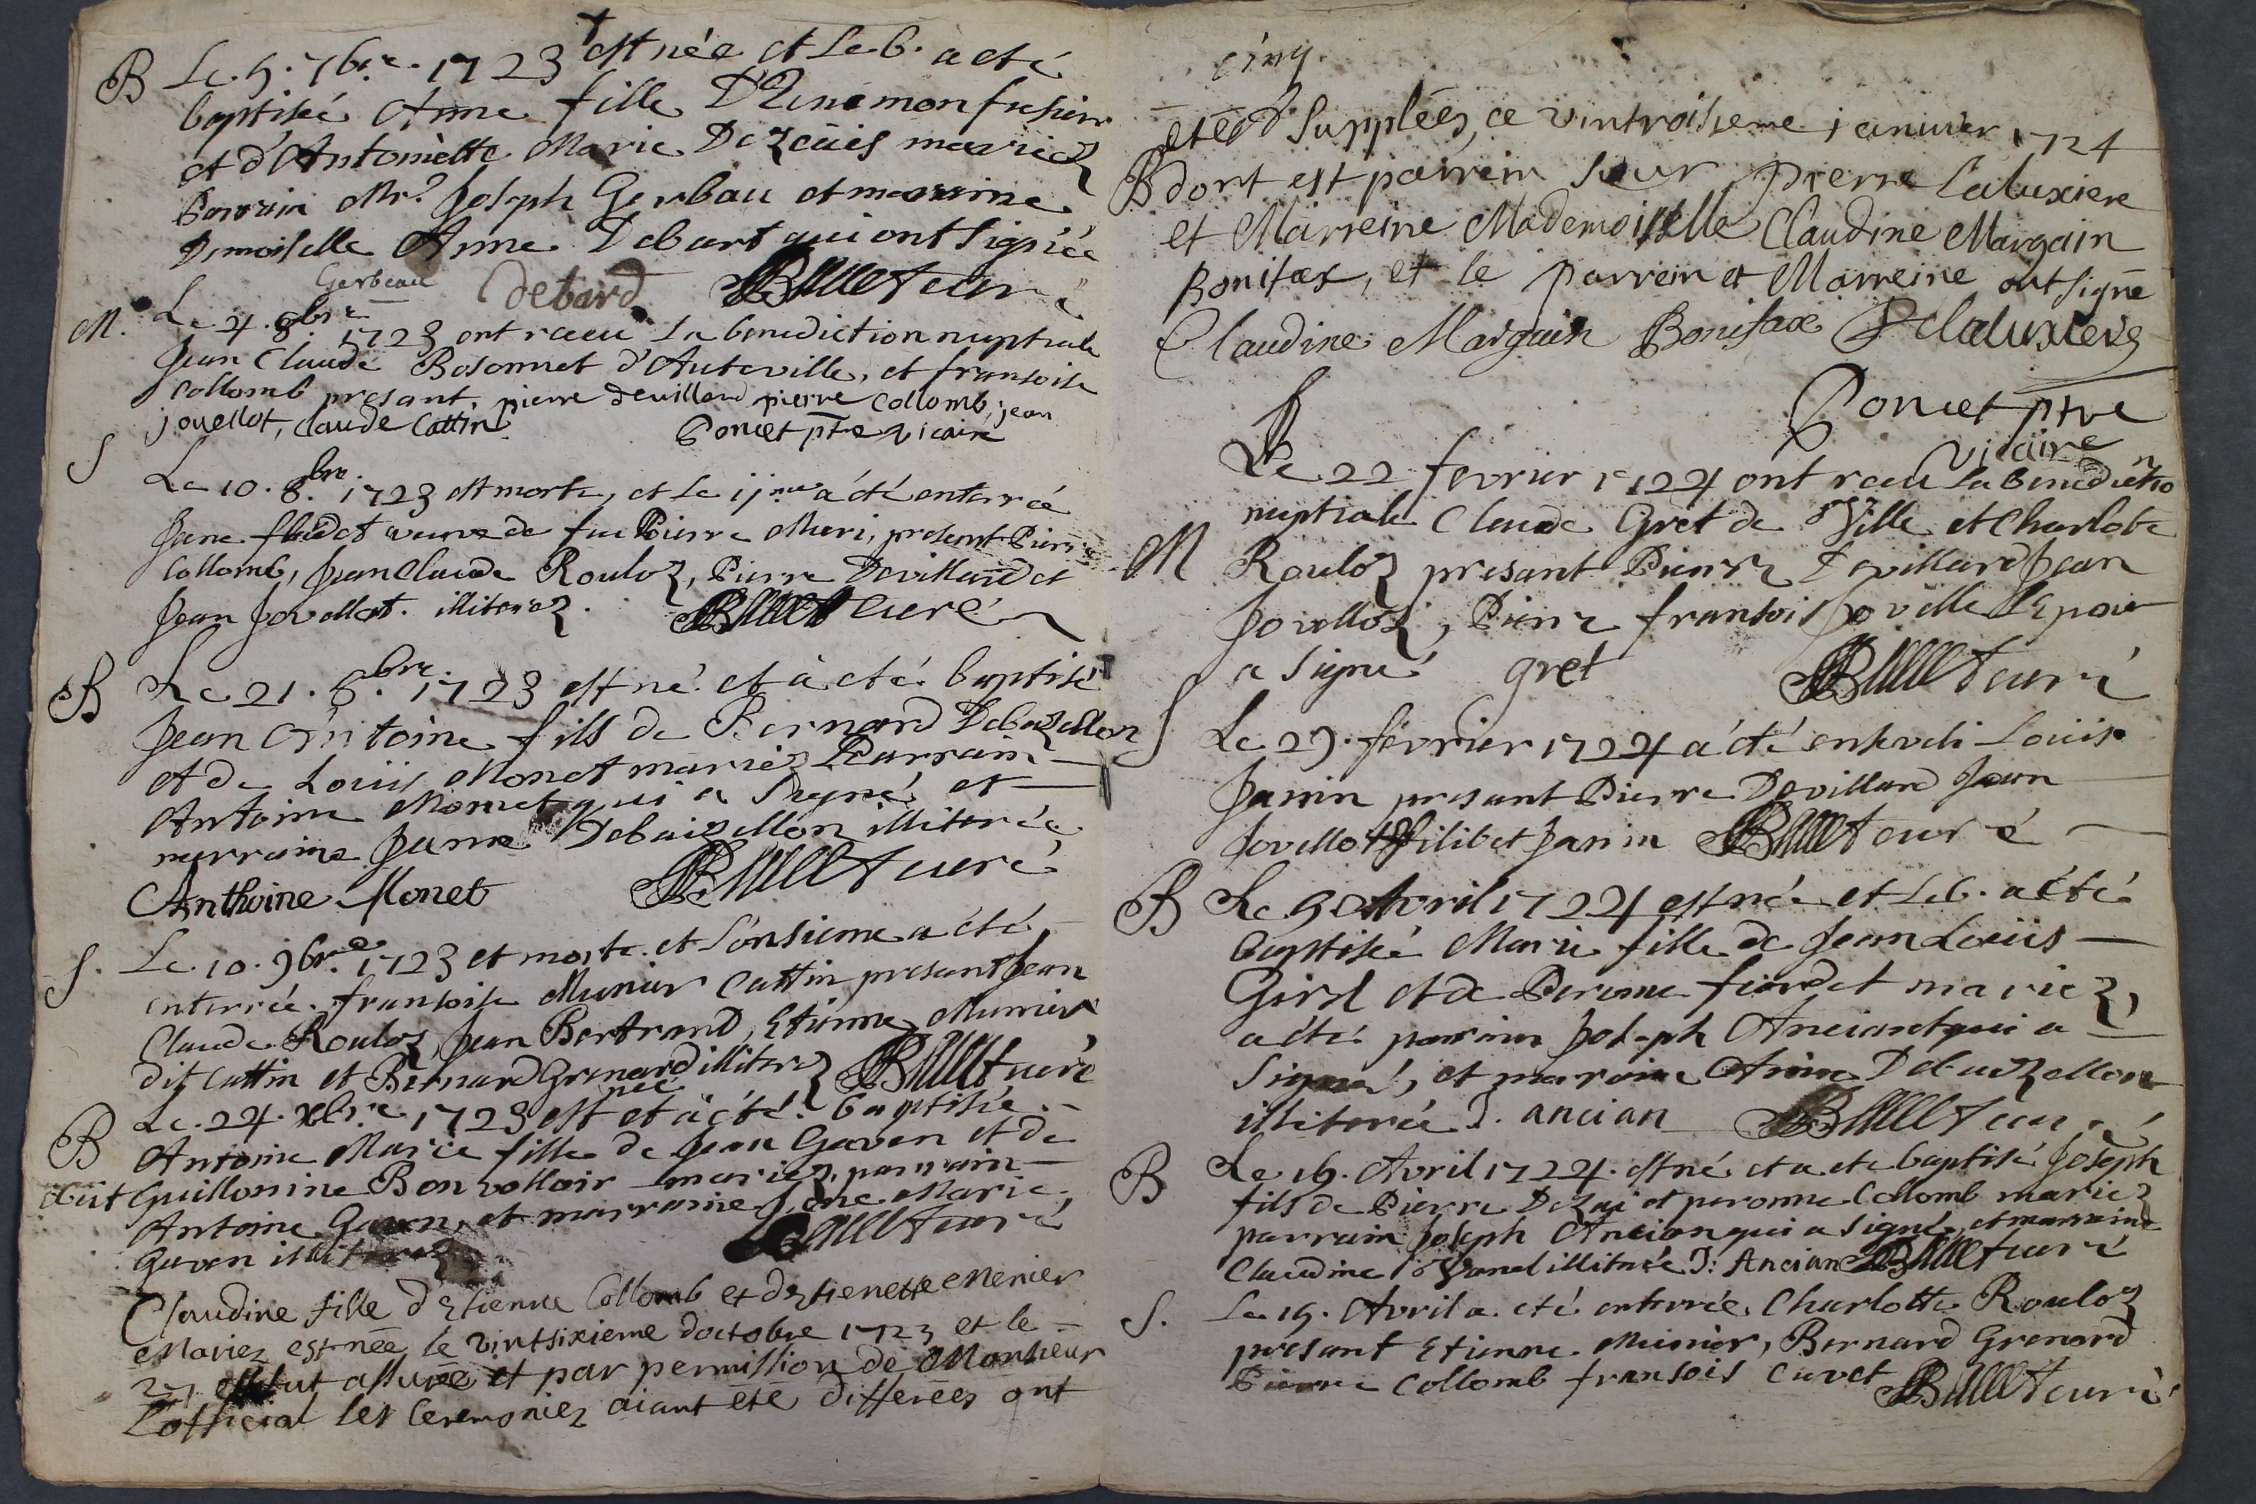 B Le 5. 7bre. 1723 + est née et le 6. a eté
baptisée Anne fille D'Enemon
et d'Antoinette Marie Dezcuis mariez
Parrain Mr. Joseph Gerbau et marrine
Demoiselle Anne Debart qui ont signée
Gerbeau debard Ballet curé
M. Le 4. 8bre 1723 ont receu la benediction nuptiale
Jean Claude Bosonnet d'Auteville, et fransoise
Collomb presant, pierre devillard pierre Collomb, jean
jouellot, claude Cattin Poncet ptre vicaire
S Le 10. 8bre. 1723 est morte, et le 11me a été enterrée
Jane veuve de feu Pierre Muri, present Pierre
Collomb, Jean Claude Rouloz, Pierre Devillard et
Jean Jovellot. illiterez. Ballet curé
B Le 21. 8bre. 1723 est né et à eté baptisé
Jean Antoine fils de Bernard Debuzellon
et de Louis Monet mariez Parrain
Antoine Monet qui a Signé et
marraine Janne Debaizellon illiterée
Anthoine Monet Ballet curé
S. Le 10. 9bre. 1723 et morte et l'onsieme a été
enterrée fransoise Munier Cattin presant Jean
Claude Rouloz, Jean Bertrand, Etienne Munier
dit Cattin et Bernard Grenard illiterez Ballet curé
B Le 24. xbre. 1723 est née et à été baptisée
Antoine Marie fille de Jean Gaven et de
Guillonine Bonvollair mariez, parrain
Antoine Gaven, et marraine Jane Marie
Gaven illiterez Ballet curé
Claudine fille d'Etienne Collomb et d'Etienette Menier
Mariez est née le vintsixieme doctobre 1723 et le
27 fut assurée et par permission de Monsieur
L'official les Ceremoniez aiant eté differeés ont
cinq.
eteé Suppleés, ce vintroisieme januier 1724
B dont est parrein Sieur pierre Laluxiere
et Marreine Mademoiselle Claudine Margain
Bonifax, et le parrein et Marreine ont signé
Claudine Margain Bonifax P Laluxiere
Poncet ptre
vicaire
Le 22 fevrier 1724 ont receu la benediction
nuptiale Claude Gret de Ville et Charlote
M Rouloz presant Pierre Devillard Jean
Jovelloz, Pierre fransois Jovelle L'Epoux
a signé gret Ballet curé
S Le 29. fevrier 1724 a été enseveli Louis
Janin presant Pierre Devillard Jean
Jovellot Filibet Janin Ballet curé
B Le 5 Avril 1724 est née et le 6. a été
baptisée Marie fille de Jean Louis
Girel et de Perone fiordet mariez,
a été parrain Joseph Anciant qui a
Signé, et maraine Anne Debuzellon
illiterée J. ancian Ballet curé
B Le 16. Avril 1724. est né et a ete baptisé Joseph
fils de Pierre Dezai et peronne Collomb mariez
parrain Joseph Ancian qui a signé, et marraine
Claudine illiterée J: Ancian Ballet curé
S. Le 19. Avril a eté enterrée Charlotte Rouloz
presant Etienne Meunier, Bernard Grenard
Pierre Collomb fransois Curet Ballet curé